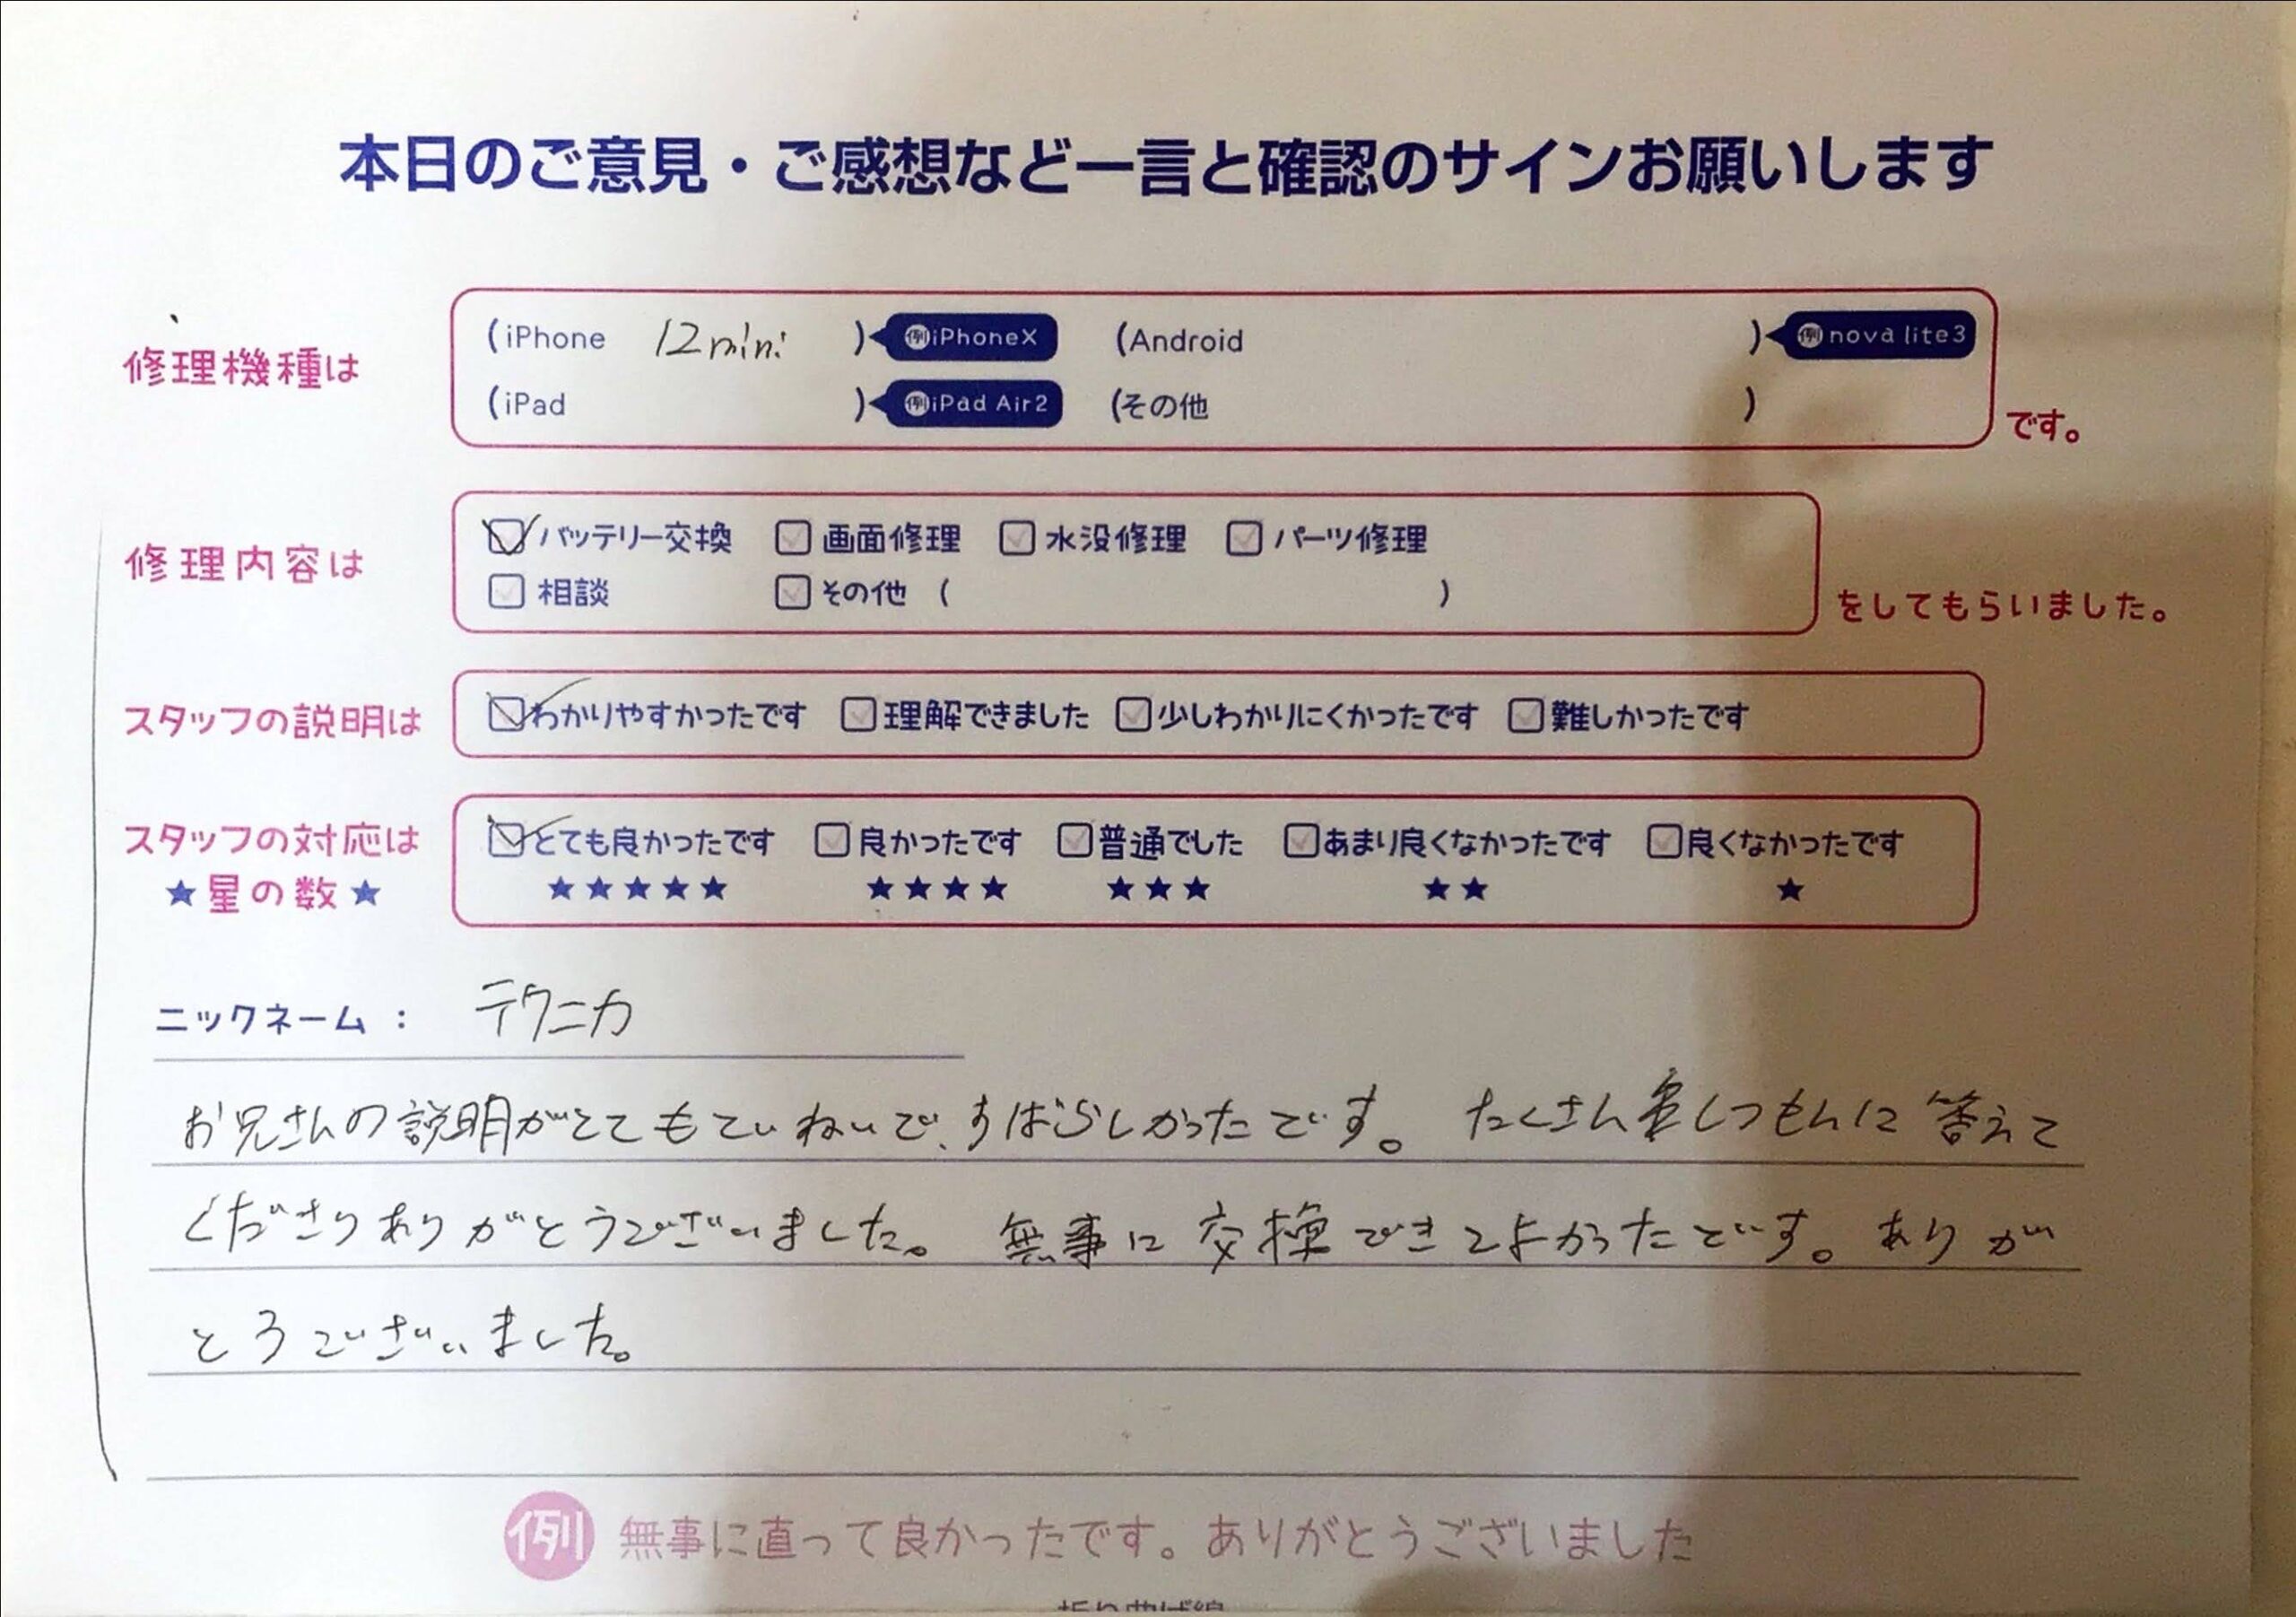 本日のご意見・ご感想など一言と確認のサインお願いします
修理機種は
(iPhone 12mini ) 例iPhoneX (Android ) 例nova lite3
(iPad ) 例iPad Air2 (その他 ) です。
修理内容は
バッテリー交換 画面修理 水没修理 パーツ修理
相談 その他 ( ) をしてもらいました。
スタッフの説明は わかりやすかったです 理解できました 少しわかりにくかったです 難しかったです
スタッフの対応は とても良かったです 良かったです 普通でした あまり良くなかったです 良くなかったです
★星の数★ ★★★★★ ★★★★ ★★★ ★★ ★
ニックネーム： テクニカ
お兄さんの説明がとてもていねいで、すばらしかったです。 たくさんしつもんに答えて
くださりありがとうございました。 無事に交換できてよかったです。ありが
とうございました。
例 無事に直って良かったです。ありがとうございました